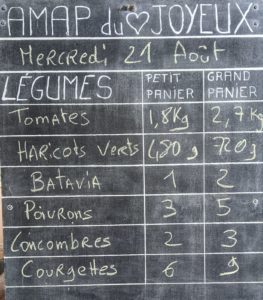 AMAP du ♡ JOYEUX
MERCREDI 21 AOÛT
LÉGUMES PETIT PANIER GRAND PANIER
TOMATES 1,8Kg 2,7Kg
HARICOTS VERTS 480g 720g
BATAVIA 1 2
POIVRONS 3 5
CONCOMBRES 2 3
COURGETTES 6 9